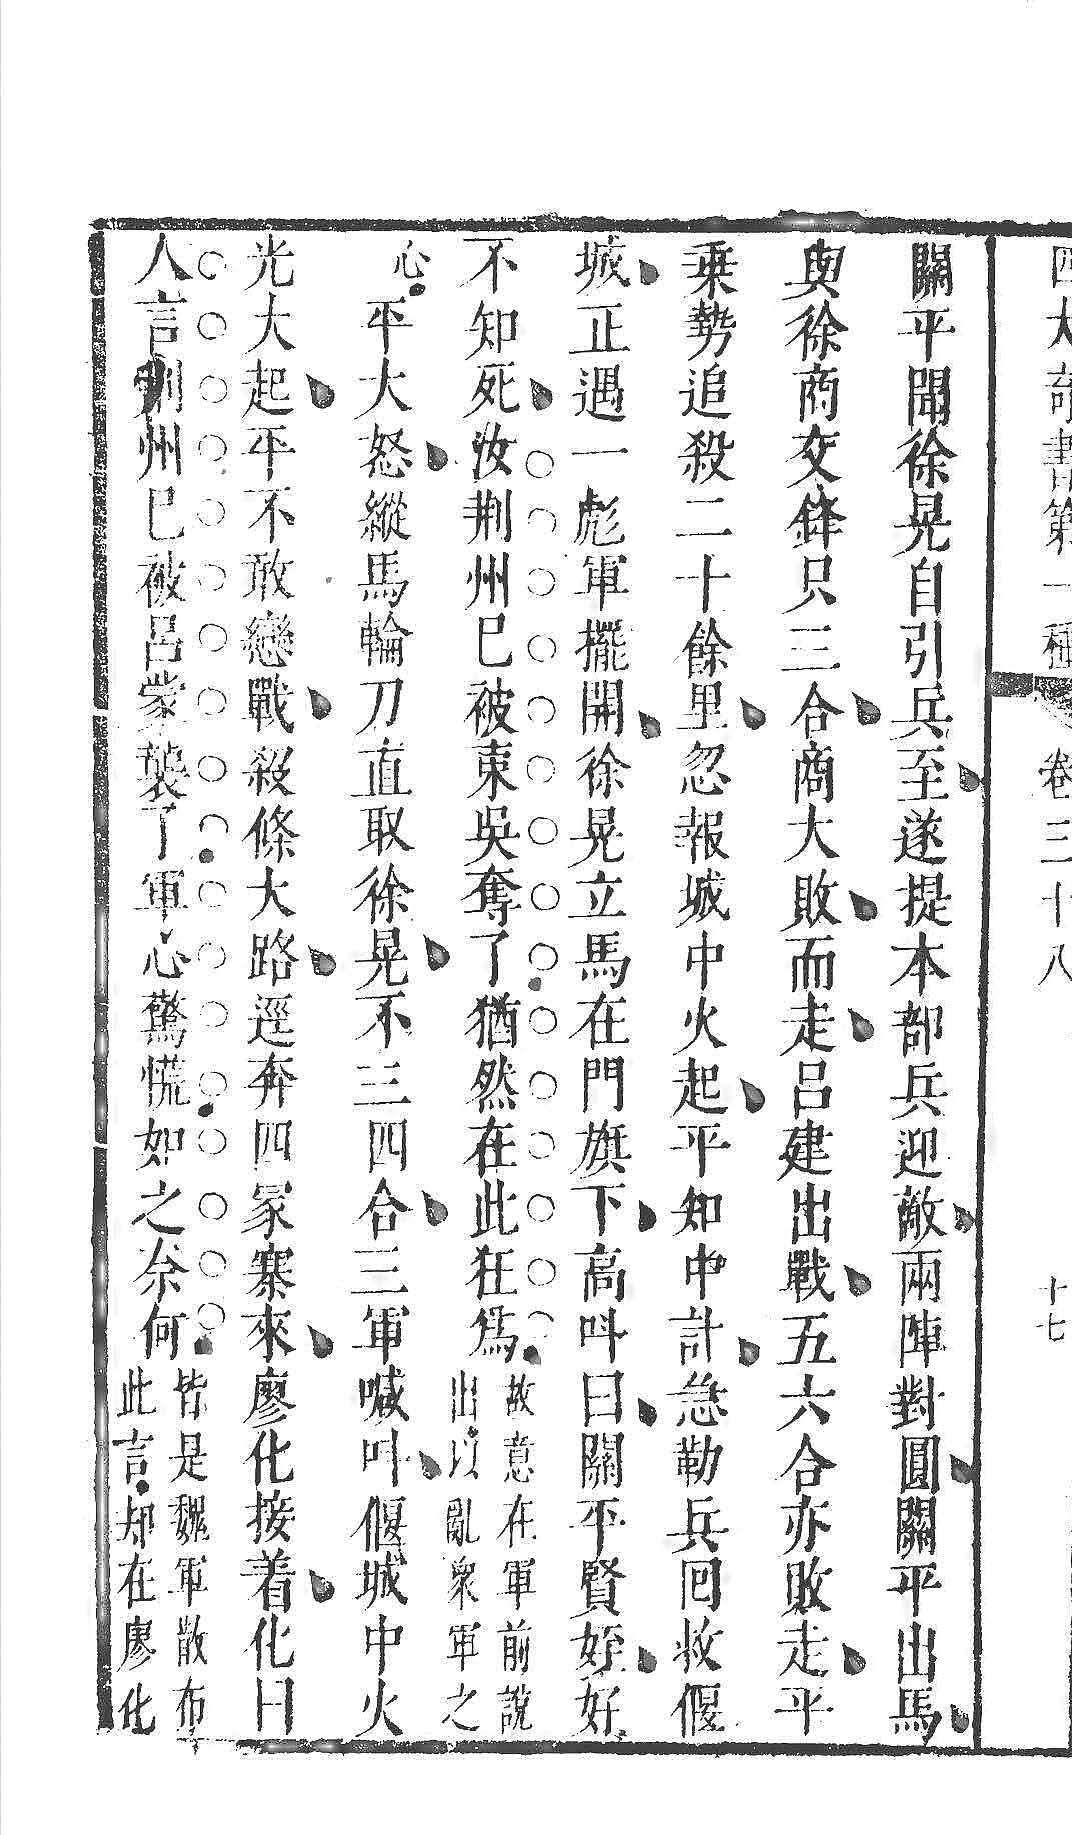 四大奇書第一種 卷三十八 十七
關平聞徐晃自引兵至遂提本部兵迎敵兩陣對圓關平出馬
與徐商交鋒只三合商大敗而走呂建出戰五六合亦敗走平
乗勢追殺二十餘里忽報城中火起平知中計急勒兵囘救偃
城正遇一彪軍擺開徐晃立馬在門旗下高呌曰關平賢姪好
不知死汝荆州已被東吳奪了猶然在此狂爲故意在軍前說出以亂衆軍之
心平大怒縱馬輪刀直取徐晃不三四合三軍喊呌偃城中火
光大起平不敢戀戰殺條大路逕奔四冢寨來廖化接着化曰
人言荆州已被呂蒙襲了軍心驚慌如之奈何皆是魏軍散布此言却在廖化